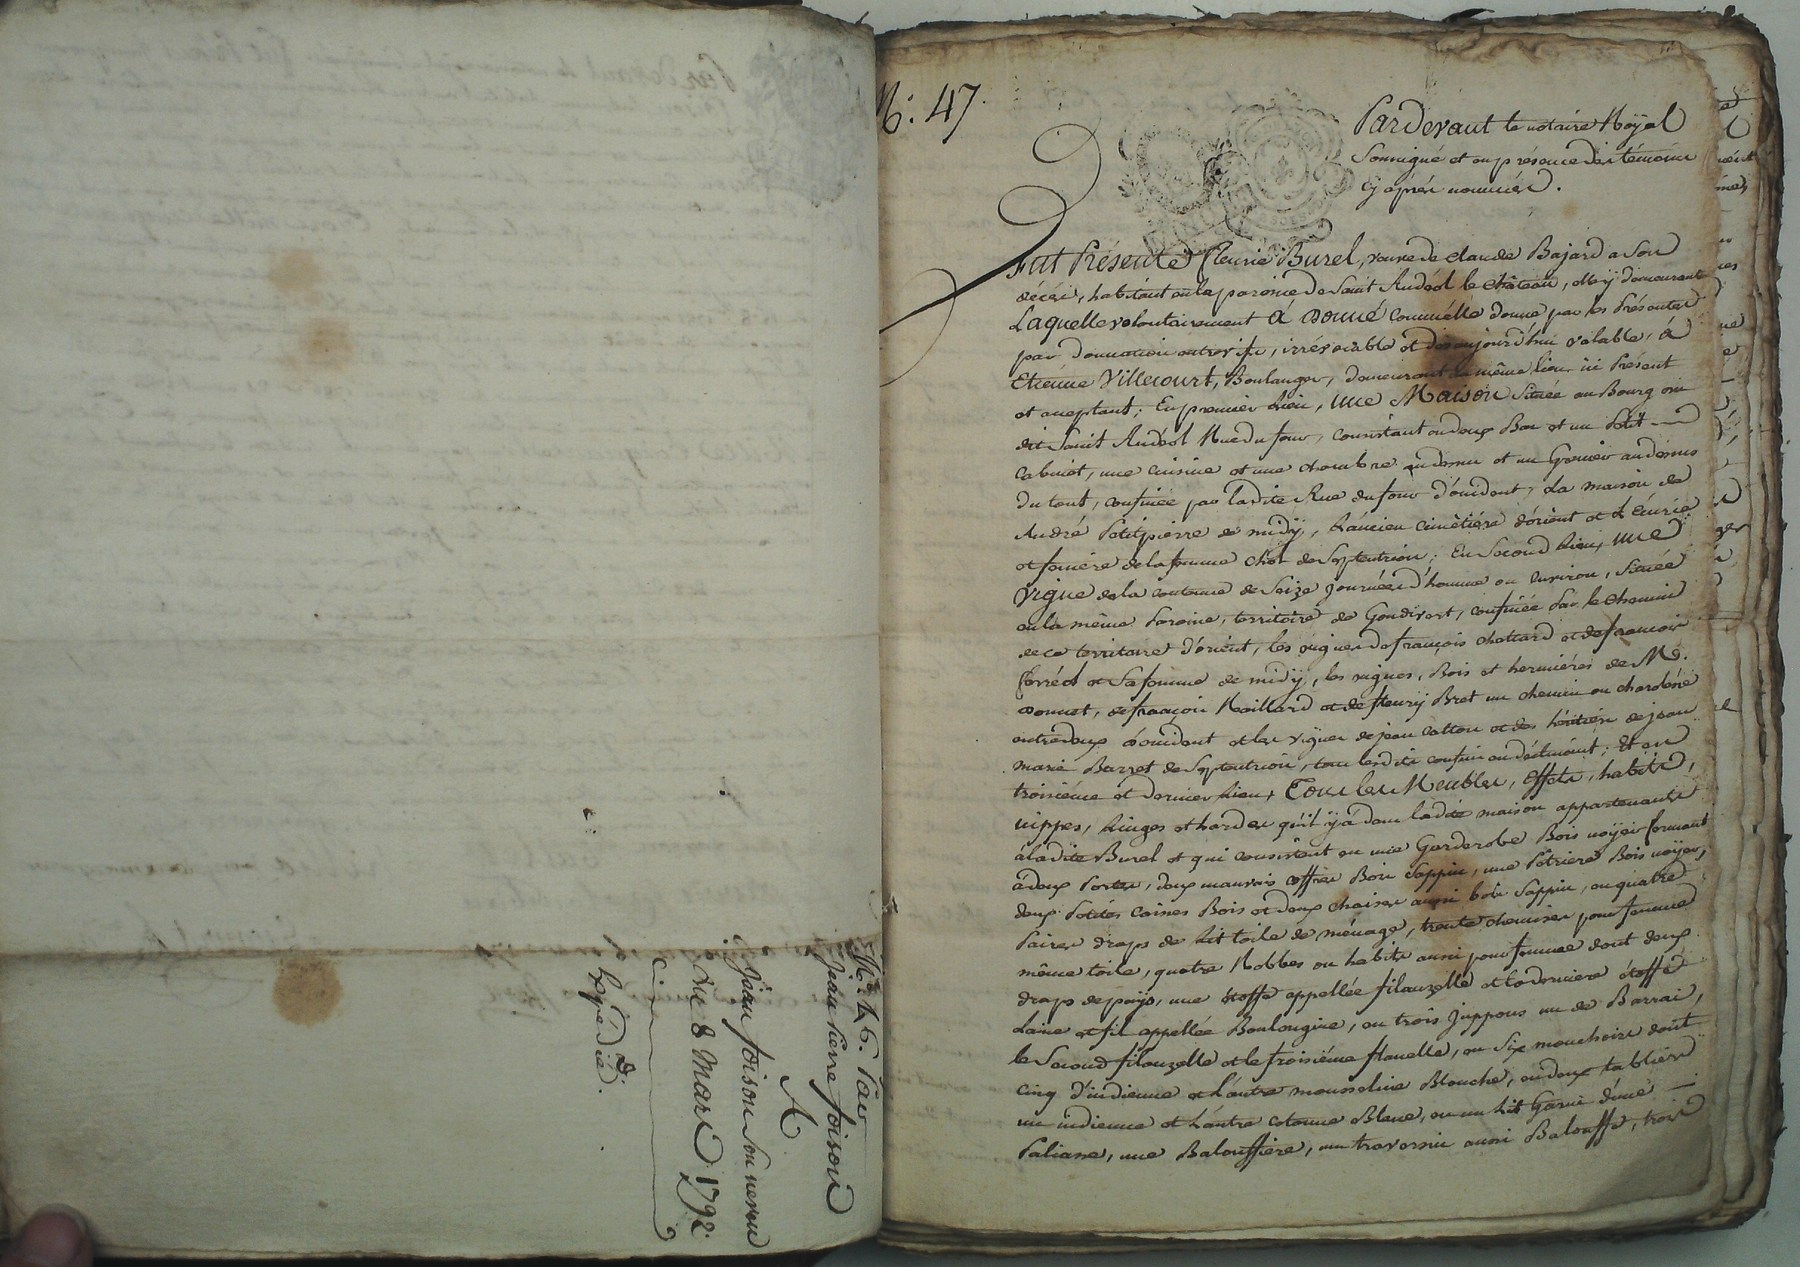 N.° 46. Par
jean pierre foison
A
jean foison son neveu
Du 8 Mars 1792.
Expédié.
N.° 47.
Pardevant le notaire Royal
Soussigné et en présence des témoins
cÿ après nommés.
Fut Présente fleurie Burel, veuve de claude Bajard a son
décès, habitant en la paroisse de Saint Andéol le château, ellaÿ demeurant
Laquelle volontairement à Donné comme elle donne par les Présentes
par donnation entrevifs, irrévocable et dès aujourd'hui valable, à
Etienne Villecourt, Boulanger, demeurant au même lieu ici Présent
et acceptant; En premier Lieu, une Maison Située au Bourg du
dit Saint Andéol Rue du four, consistant en deux Bas et un Petit
Cabinet, une cuisine et une chambre au dessus et un Grenier au dessus
du tout, confinée par ladite Rue du four d'occident, La maison de
André Petitpierre de midÿ, L'ancien cimetière d'orient et L'écurie
et feniere de la femme de Septentrion; En Second Lieu, une
Vigne de la contenue de Seize journées d'homme ou environ, Située
en la même Paroisse, territoire de Gondivert, confinée Par le Chemin
de ce territoire d'orient, les vignes de françois chattard et de françois
et Sa femme de midÿ, les vignes, Bois et hermières de M.
Donnet, de françois Roillard et de fleurÿ Bret un chemin ou charobére
entredeux d'occident et les vignes de jean catton et des héritiers de jean
marie Barret de Septentrion, tous lesdits confins ; Et en
troisième et dernier Lieu, Tous les Meubles, Effets, habits,
nippes, Linges et hardes qu'il ÿ a dans ladite maison appartenants
à ladite Burel et qui consistent en une Garderobe Bois noÿer fermant
à deux Portes, deux mauvais coffres Bois Sappin, une Pétriere Bois noÿer,
deux Petites Caisses Bois et deux chaises aussi bois Sappin, en quatre
Paires draps de Lit toile de ménage, trente chemises pour femme
même toile, quatre Robbes ou habits aussi pour femme dont deux
draps de paÿs, une étoffe appellée filauzelle et la derniere étoffe
Laine et fil appellée Boulongine, en trois Juppons un de Barrai,
le Second filauzelle et le troisième flanelle, en Six mouchoirs dont
cinq d'indienne et L'autre mousseline Blanche, en deux tabliers
un indienne et L'autre cotonne Bleue, en un Lit Garni d'une
Paliasse, une Balouffiere, un traversin aussi Balouffe, trois